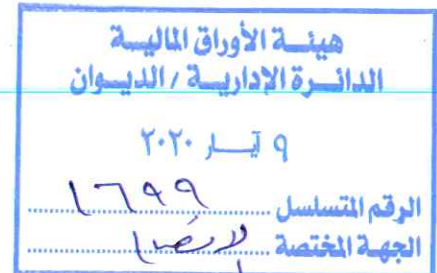 هيئة الأوراق المالية
الدائرة الإدارية / الديوان
٩ آيار ٢٠٢٠
الرقم المتسلسل ١٦٩٩
الجهة المختصة